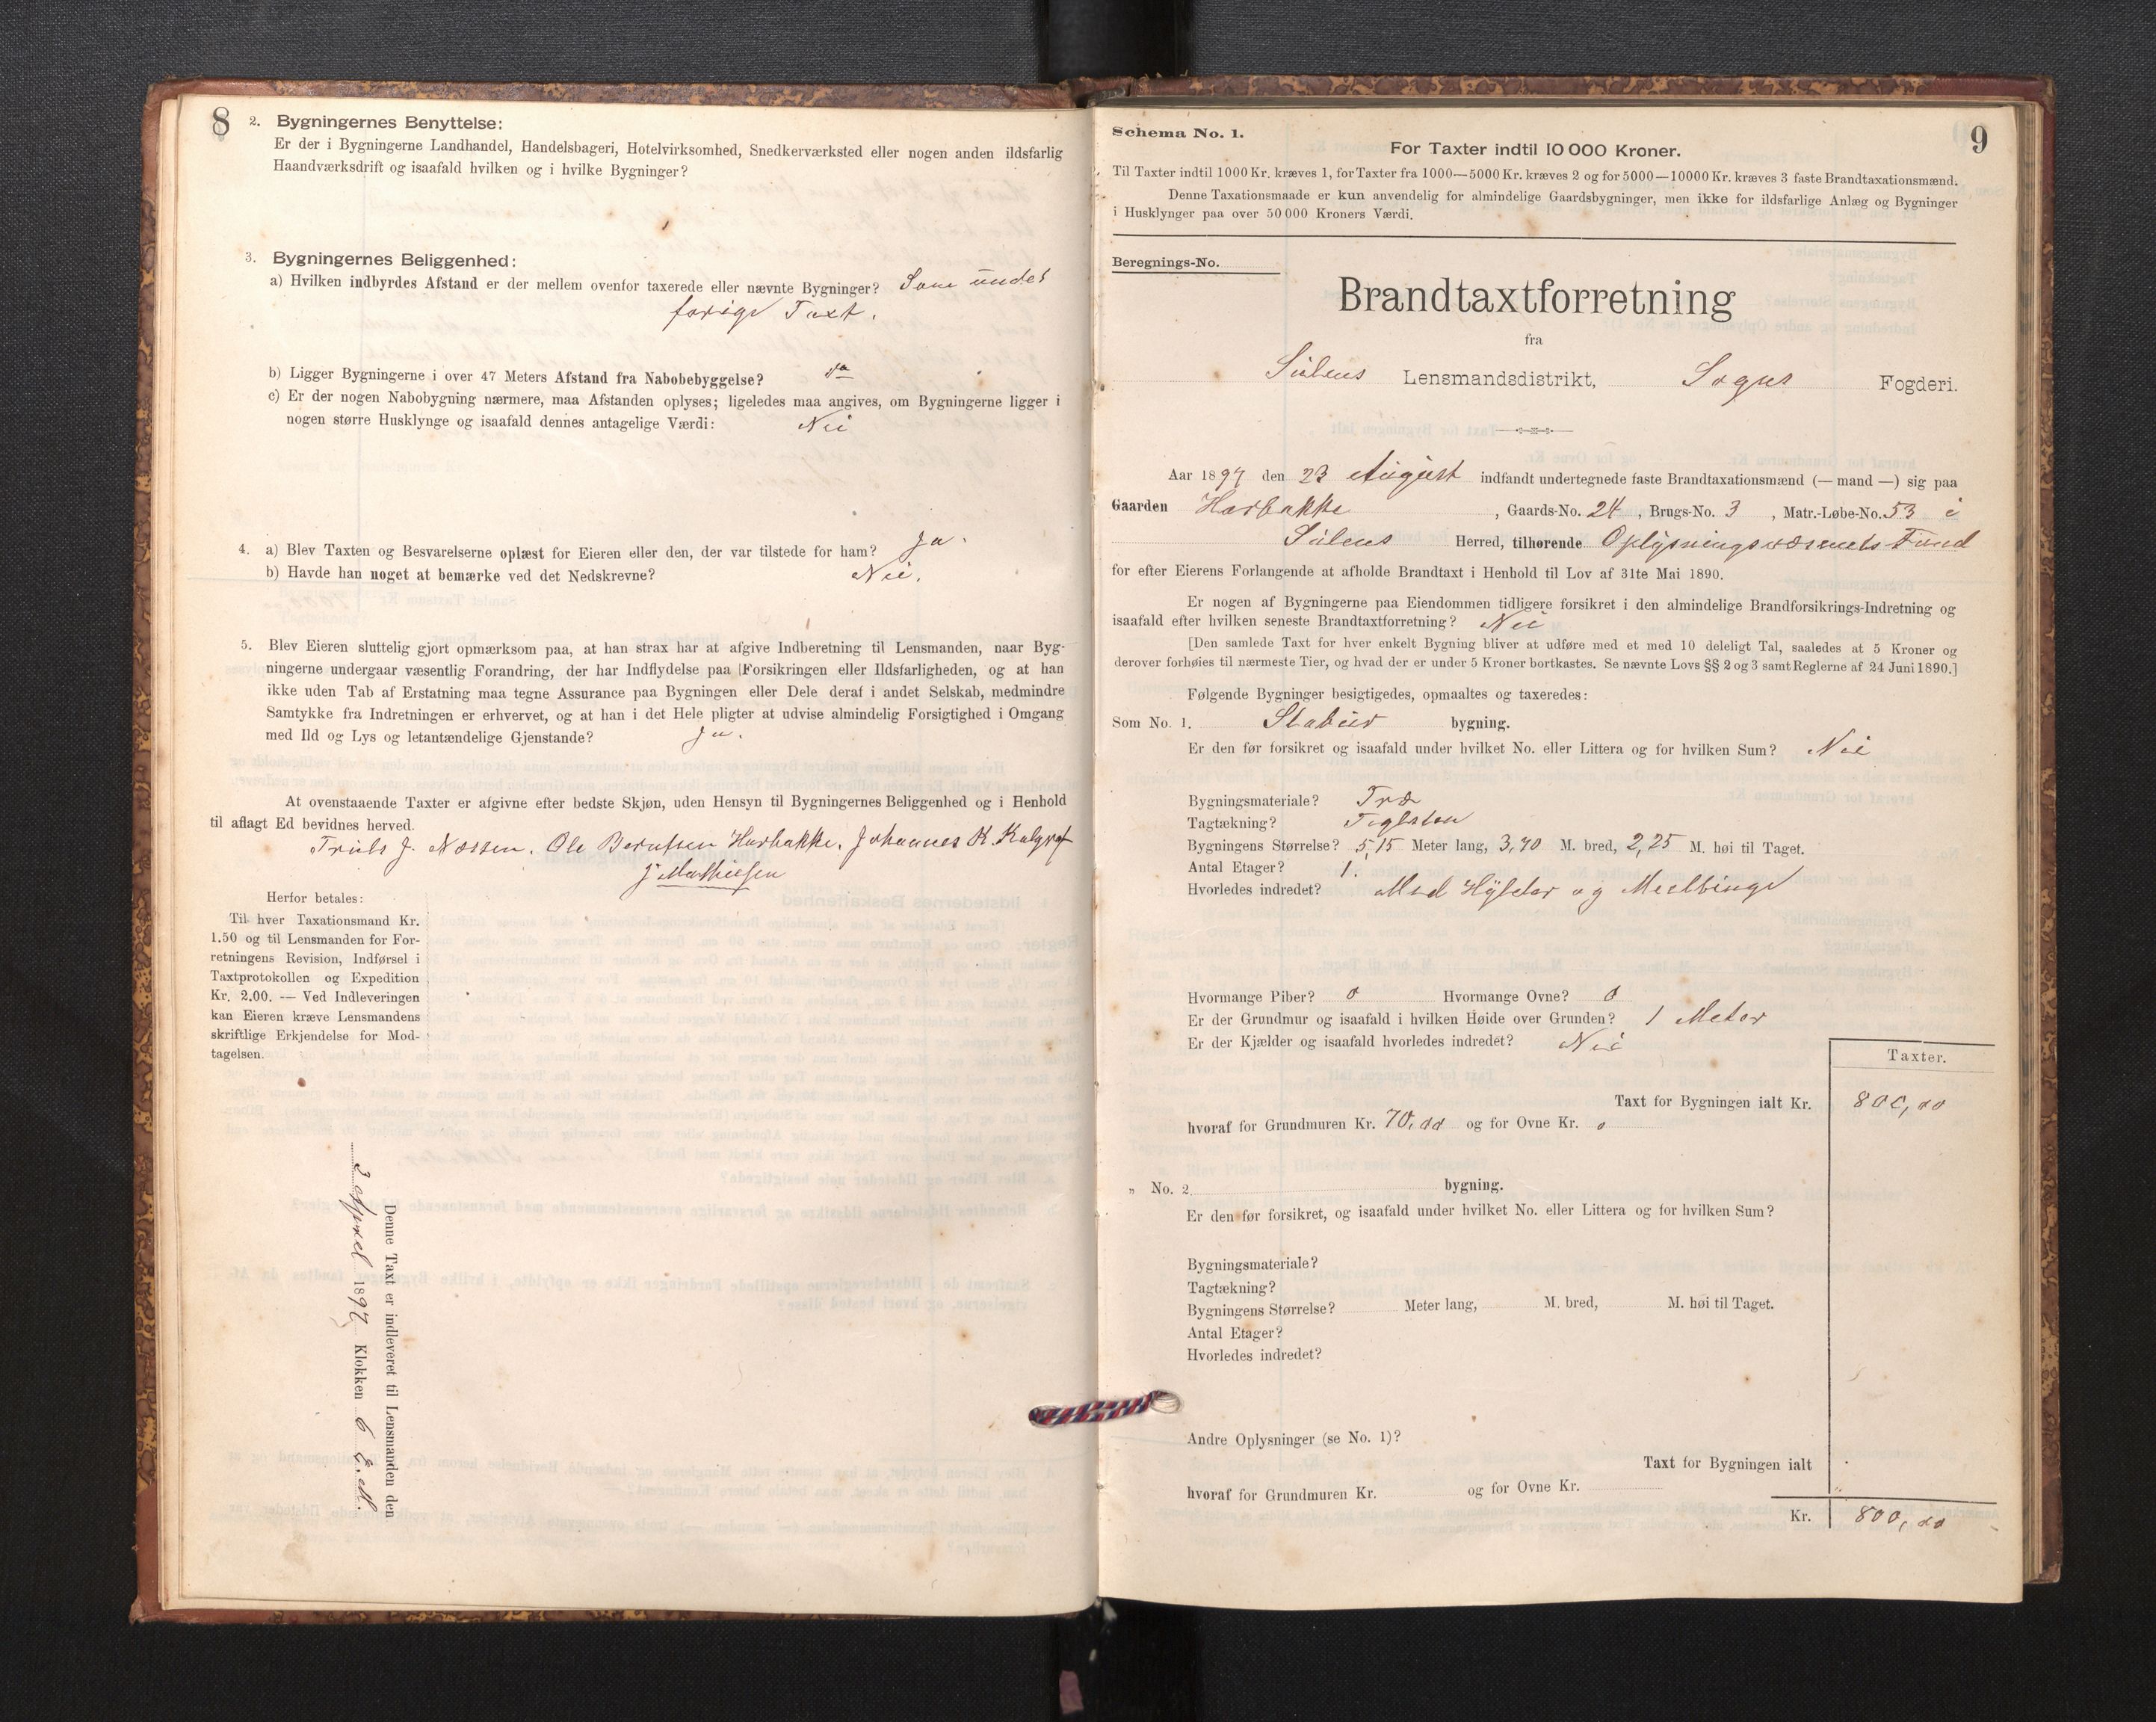 8
2. Bygningernes Benyttelse:
Er der i Bygningerne Landhandel, Handelsbageri, Hotelvirksomhed, Snedkerværksted eller nogen anden ildsfarlig
Haandværksdrift og isaafald hvilken og i hvilke Bygninger?
3. Bygningernes Beliggenhed:
a) Hvilken indbyrdes Afstand er der mellem ovenfor taxerede eller nævnte Bygninger? Som under
forige Taxt.
b) Ligger Bygningerne i over 47 Meters Afstand fra Nabobebyggelse? Ja
c) Er der nogen Nabobygning nærmere, maa Afstanden oplyses; ligeledes maa angives, om Bygningerne ligger i
nogen større Husklynge og isaafald dennes antagelige Værdi: Nei
4. a) Blev Taxten og Besvarelserne oplæst for Eieren eller den, der var tilstede for ham? Ja.
b) Havde han noget at bemærke ved det Nedskrevne? Nei.
5. Blev Eieren sluttelig gjort opmærksom paa, at han strax har at afgive Indberetning til Lensmanden, naar Byg-
ningerne undergaar væsentlig Forandring, der har Indflydelse paa Forsikringen eller Ildsfarligheden, og at han
ikke uden Tab af Erstatning maa tegne Assurance paa Bygningen eller Dele deraf i andet Selskab, medmindre
Samtykke fra Indretningen er erhvervet, og at han i det Hele pligter at udvise almindelig Forsigtighed i Omgang
med Ild og Lys og letantændelige Gjenstande? Ja.
At ovenstaaende Taxter er afgivne efter bedste Skjøn, uden Hensyn til Bygningernes Beliggenhed og i Henhold
til aflagt Ed bevidnes herved.
Truls J. Næssen. Ole Berntsen Harbakke. Johannes K.
J Mathiesen
Herfor betales:
Til hver Taxationsmand Kr.
1.50 og til Lensmanden for For-
retningens Revision, Indførsel i
Taxtprotokollen og Expedition
Kr. 2.00. — Ved Indleveringen
kan Eieren kræve Lensmandens
skriftlige Erkjendelse for Mod-
tagelsen.
Denne Taxt er indleveret til Lensmanden den
3 1897 Klokken 6 E.M.
9
Schema No. 1.
For Taxter indtil 10 000 Kroner.
Til Taxter indtil 1000 Kr. kræves 1, for Taxter fra 1000—5000 Kr. kræves 2 og for 5000—10000 Kr. kræves 3 faste Brandtaxationsmænd.
Denne Taxationsmaade er kun anvendelig for almindelige Gaardsbygninger, men ikke for ildsfarlige Anlæg og Bygninger
i Husklynger paa over 50 000 Kroners Værdi.
Beregnings-No.
Brandtaxtforretning
fra
Sulens Lensmandsdistrikt, Sogns Fogderi.
Aar 1897 den 23 August indfandt undertegnede faste Brandtaxationsmænd (— mand —) sig paa
Gaarden Harbakke, Gaards-No. 24, Brugs-No. 3, Matr.-Løbe-No. 53 i
Sulens Herred, tilhørende Oplysningsvæsenets Fund
for efter Eierens Forlangende at afholde Brandtaxt i Henhold til Lov af 31te Mai 1890.
Er nogen af Bygningerne paa Eiendommen tidligere forsikret i den almindelige Brandforsikrings-Indretning og
isaafald efter hvilken seneste Brandtaxtforretning? Nei
[Den samlede Taxt for hver enkelt Bygning bliver at udføre med et med 10 deleligt Tal, saaledes at 5 Kroner og
derover forhøies til nærmeste Tier, og hvad der er under 5 Kroner bortkastes. Se nævnte Lovs §§ 2 og 3 samt Reglerne af 24 Juni 1890.]
Følgende Bygninger besigtigedes, opmaaltes og taxeredes:
Som No. 1. Stabur bygning.
Er den før forsikret og isaafald under hvilket No. eller Littera og for hvilken Sum? Nei
Bygningsmateriale? Træ
Tagtækning? Teglsten
Bygningens Størrelse? 5,15 Meter lang, 3,70 M. bred, 2,25 M. høi til Taget.
Antal Etager? 1.
Hvorledes indredet? Med Hylder og Meelbinge
Hvormange Piber? 0 Hvormange Ovne? 0
Er der Grundmur og isaafald i hvilken Høide over Grunden? 1 Meter
Er der Kjælder og isaafald hvorledes indredet? Nei
Taxter.
Taxt for Bygningen ialt Kr. 800,00
hvoraf for Grundmuren Kr. 70,00 og for Ovne Kr. 0
„ No. 2 bygning.
Er den før forsikret, og isaafald under hvilket No. eller Littera og for hvilken Sum?
Bygningsmateriale?
Tagtækning?
Bygningens Størrelse? Meter lang, M. bred, M. høi til Taget.
Antal Etager?
Hvorledes indredet?
Andre Oplysninger (se No. 1)?
Taxt for Bygningen ialt
hvoraf for Grundmuren Kr. og for Ovne Kr.
Kr. 800,00